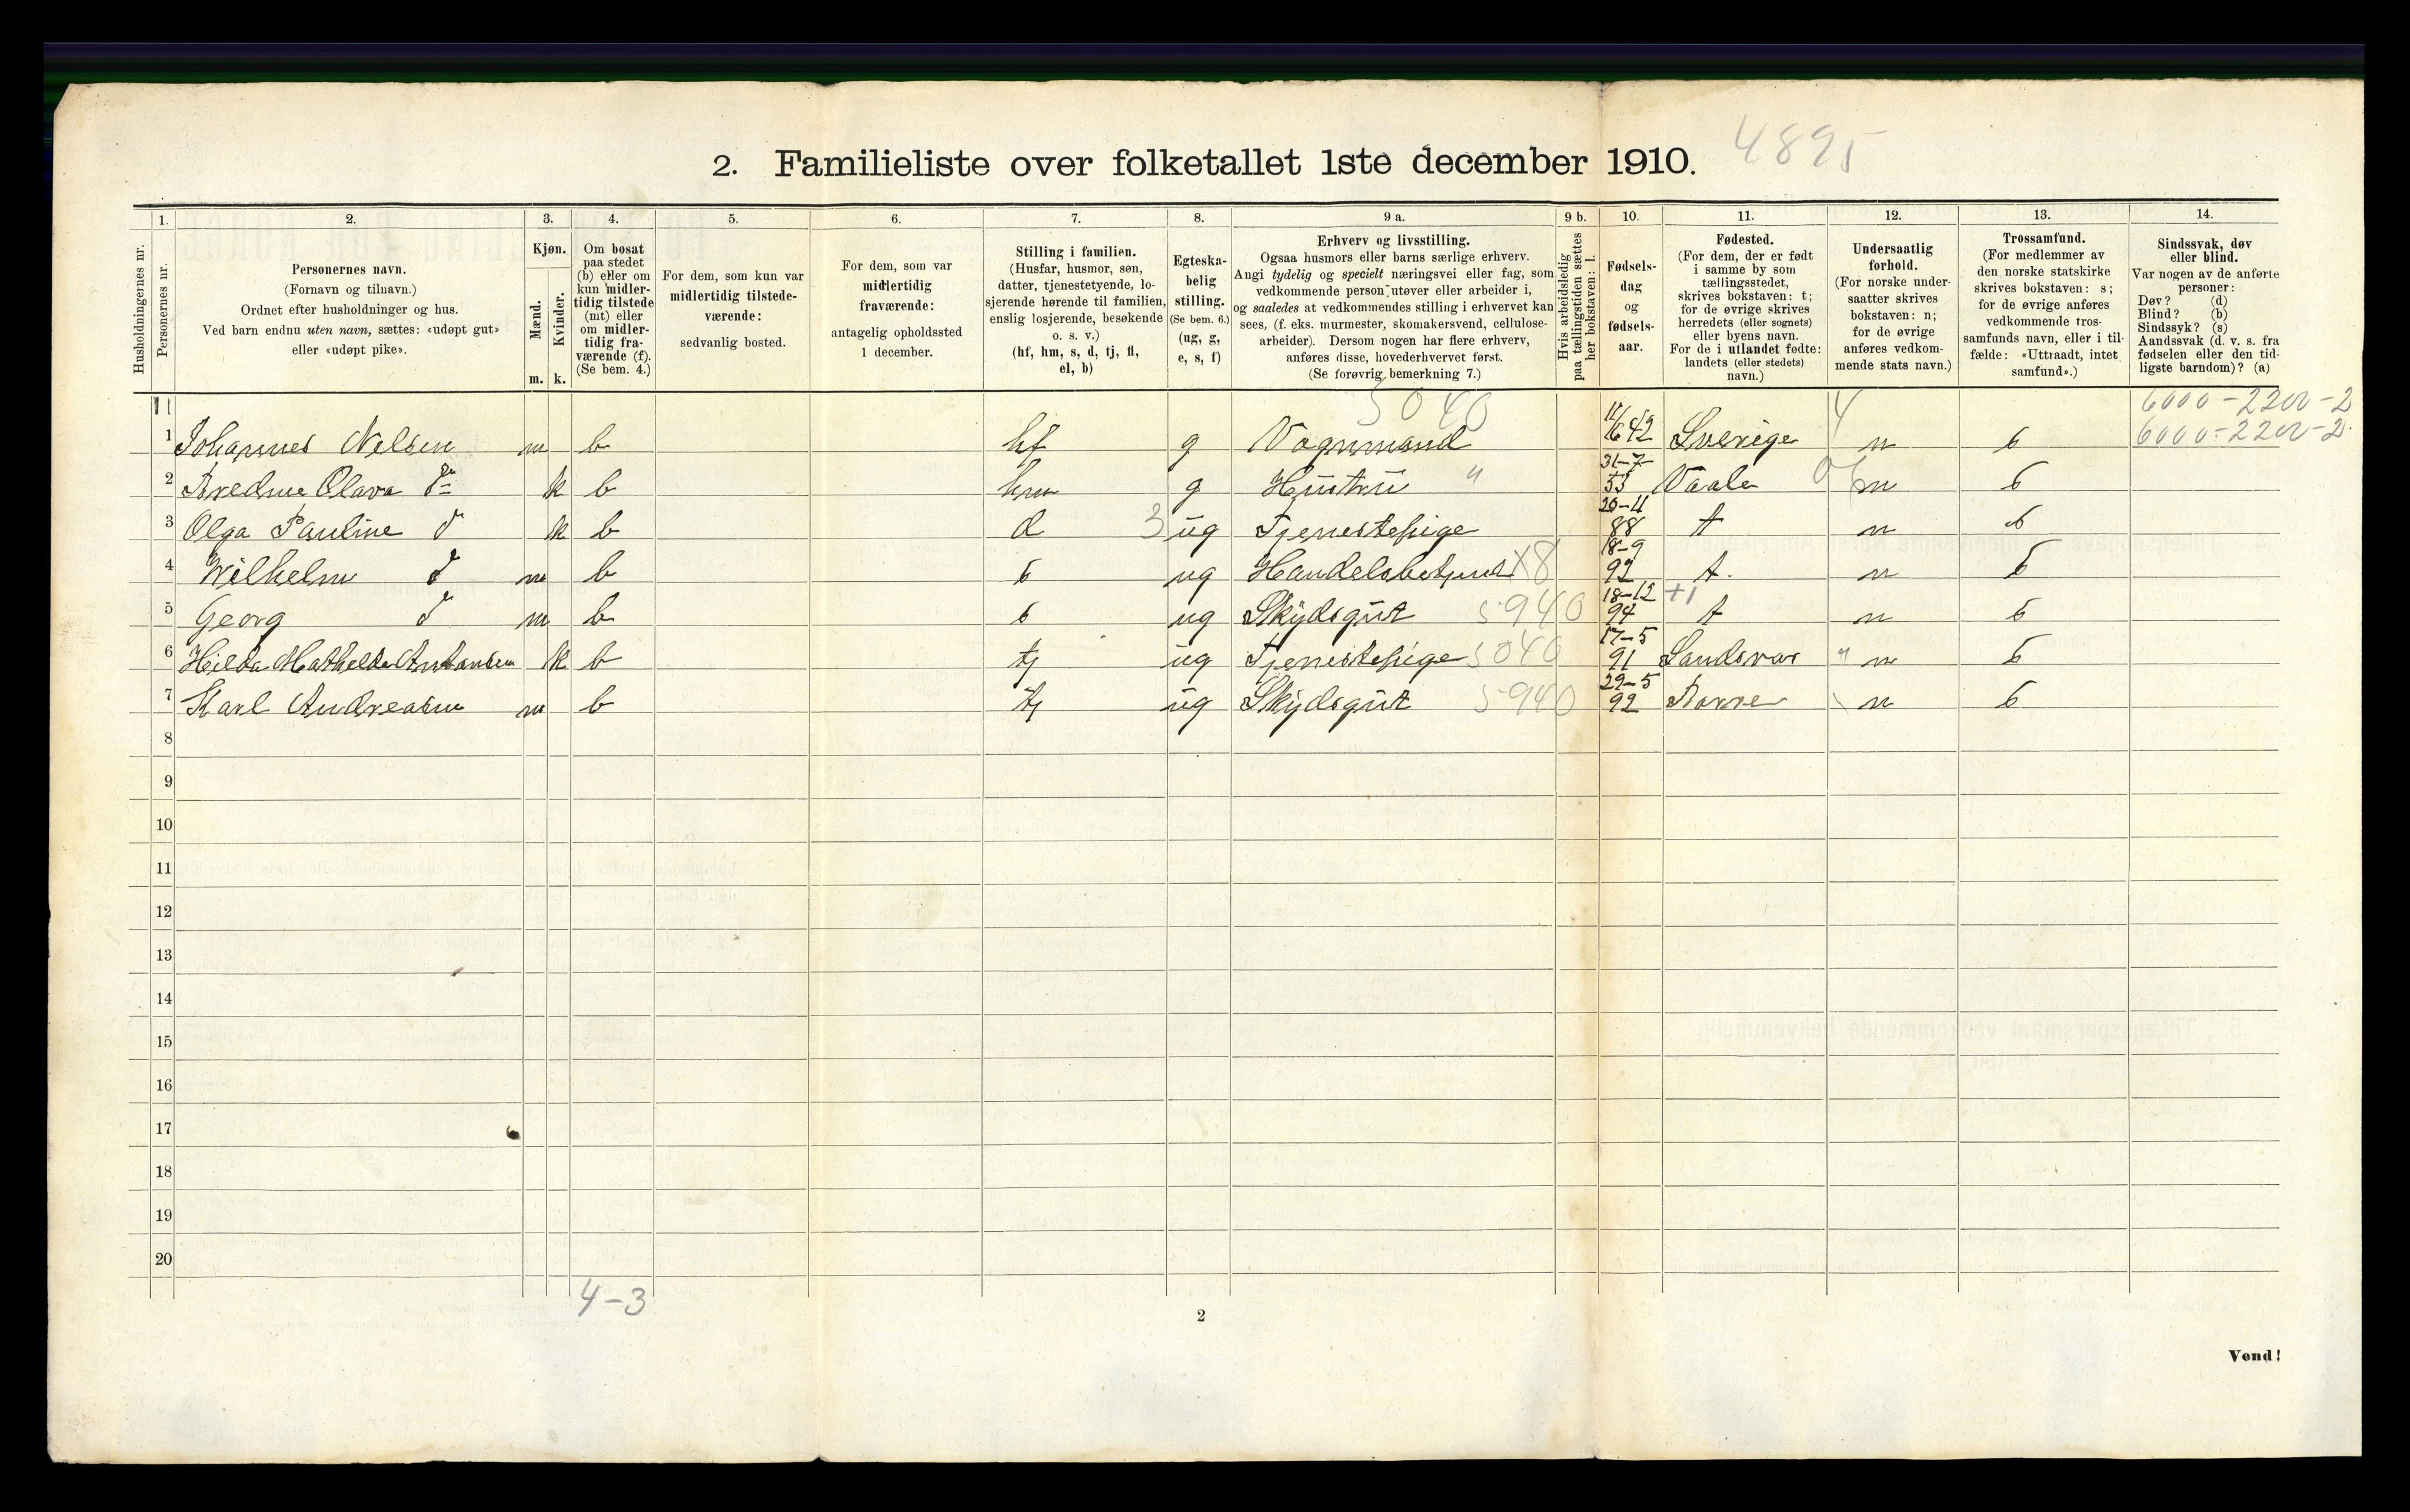 2. Familieliste over folketallet 1ste december 1910. 4895
Husholdningernes nr.
1. Personernes nr.
2. Personernes navn.
(Fornavn og tilnavn.)
Ordnet efter husholdninger og hus.
Ved barn endnu uten navn, sættes: «udøpt gut»
eller «udøpt pike».
3. Kjøn.
Mænd. Kvinder.
m. k.
4. Om bosat
paa stedet
(b) eller om
kun midler-
tidig tilstede
(mt) eller
om midler-
tidig fra-
værende (f).
(Se bem. 4.)
5. For dem, som kun var
midlertidig tilstede-
værende:
sedvanlig bosted.
6. For dem, som var
midlertidig
fraværende:
antagelig opholdssted
1 december.
7. Stilling i familien.
(Husfar, husmor, søn,
datter, tjenestetyende, lo-
sjerende hørende til familien,
enslig losjerende, besøkende
o. s. v.)
(hf, hm, s, d, tj, fl,
el, b)
8. Egteska-
belig
stilling.
(Se bem. 6.)
(ug, g,
e, s, f)
9 a. Erhverv og livsstilling.
Ogsaa husmors eller barns særlige erhverv.
Angi tydelig og specielt næringsvei eller fag, som
vedkommende person utøver eller arbeider i,
og saaledes at vedkommendes stilling i erhvervet kan
sees, (f. eks. murmester, skomakersvend, cellulose-
arbeider). Dersom nogen har flere erhverv,
anføres disse, hovederhvervet først.
(Se forøvrig bemerkning 7.)
9 b. Hvis arbeidsledig
paa tællingstiden sættes
her bokstaven: l.
10. Fødsels-
dag
og
fødsels-
aar.
11. Fødested.
(For dem, der er født
i samme by som
tællingsstedet,
skrives bokstaven: t;
for de øvrige skrives
herredets (eller sognets)
eller byens navn.
For de i utlandet fødte:
landets (eller stedets)
navn.)
12. Undersaatlig
forhold.
(For norske under-
saatter skrives
bokstaven: n;
for de øvrige
anføres vedkom-
mende stats navn.)
13. Trossamfund.
(For medlemmer av
den norske statskirke
skrives bokstaven: s;
for de øvrige anføres
vedkommende tros-
samfunds navn, eller i til-
fælde: «Uttraadt, intet
samfund».)
14. Sindssvak, døv
eller blind.
Var nogen av de anførte
personer:
Døv? (d)
Blind? (b)
Sindssyk? (s)
Aandssvak (d. v. s. fra
fødselen eller den tid-
ligste barndom)? (a)
5040 6000-2200-2
1 Johannes Nelsen m b hf g Vognmand 11/6 42 Sverige n s 6000-2200-2
2 Olava do k b hm g Hustru " 31-7-53 Vaale n s
3 Olga Pauline do k b d 3 ug Tjenestepige 20-11 88 t n s
4 Wilhelm do m b s ug Handelsbetjent X8 18-9 92 t. n s
5 Georg do m b s ug Skydsgut 5940 18-12 94 +1 t n s
6 Hilda Mathilde Antonsen k b tj ug Tjenestepige 5040 17-5 91 Sandsvær n s
7 Karl Andreasen m b tj ug Skydsgut 5940 29-5 92 Borre n s
8
9
10
11
12
13
14
15
16
17
18
19
20
4-3
2
Vend!